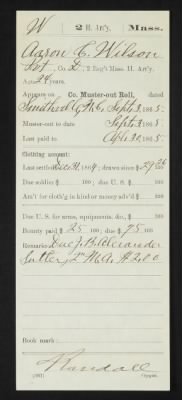 W 2 H. Art'y. Mass.
Aaron C. Wilson
Pvt., Co. , 2 Reg't Mass. H. Art'y.
Age 24 years.
Appears on Co. Muster-out Roll, dated
Smithville N.C. Sept 3, 1865.
Muster-out to date Sept 3, 1865.
Last paid to Apr 30, 1865.
Clothing account:
Last settled Dec 31, 1864; drawn since $ 29 26/100
Due soldier $ /100; due U. S. $ /100
Am't for cloth'g in kind or money adv'd $ /100
Due U. S. for arms, equipments, &c., $ /100
Bounty paid $ 25 /100; due $ 75 /100
Remarks: Due J. B. Alexander
Sutler, 2" M. A. $2.00
Book mark:
Randall
(861) Copyist.